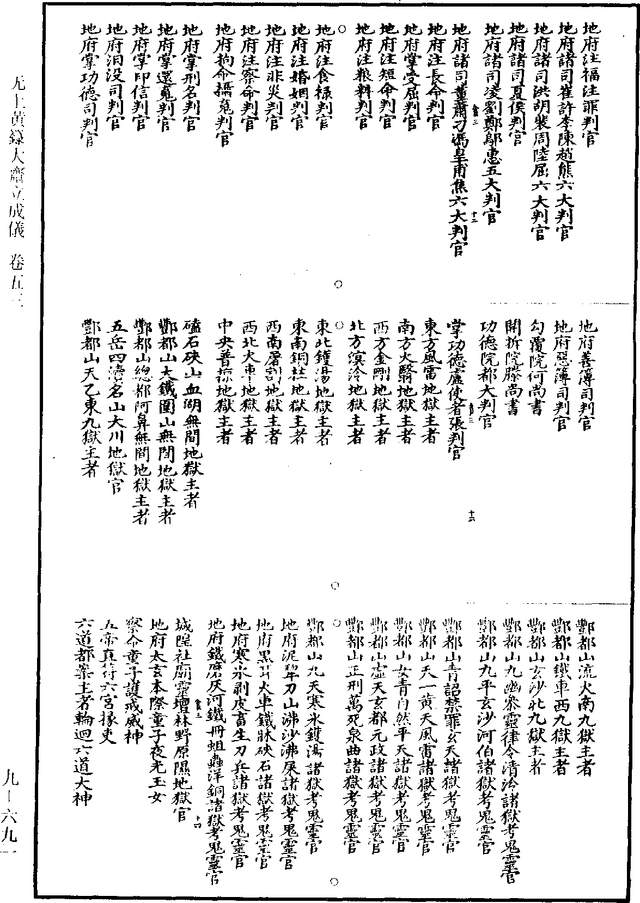 地府注福注罪判官
地府諸司崔許李陳趙熊六大判官
地府諸司洪胡裴周陸屈六大判官
地府諸司夏侯判官
地府諸司凌劉鄭鄔惠五大判官
地府諸司董蕭刁馮皇甫焦六大判官
地府注長命判官
地府掌受屈判官
地府注短命判官
地府注粮料判官
地府注食祿判官
地府注婚姻判官
地府注非災判官
地府注察命判官
地府拘命攝䰟判官
地府掌刑名判官
地府掌還䰟判官
地府掌印信判官
地府汩没司判官
地府掌功德司判官
地府善簿司判官
地府惡簿司判官
勾覆院何尚書
開拆院滕尚書
功德院都大判官
掌功德盧使者張判官
東方風雷地獄主者
南方火翳地獄主者
西方金剛地獄主者
北方溟泠地獄主者
東北鑊湯地獄主者
東南銅柱地獄主者
西南屠割地獄主者
西北火車地獄主者
中央普掠地獄主者
硤石山血湖無間地獄主者
酆都山大鐵圍山無間地獄主者
酆都山總都阿鼻無間地獄主者
五岳四瀆名山大川地獄官
酆都山天乙東九獄主者
酆都山流火南九獄主者
酆都山鐵車西九獄主者
酆都山玄沙北九獄主者
酆都山九幽察靈律令清泠諸獄考鬼靈官
酆都山九平玄沙河伯諸獄考鬼靈官
酆都山青詔禁罪玄天諸獄考鬼靈官
酆都山天一黄天風雷諸獄考鬼靈官
酆都山女青自然平天諸獄考鬼靈官
酆都山虚天玄都元政諸獄考鬼靈官
酆都山正刑萬死泉曲諸獄考鬼靈官
酆都山九天寒氷鑊湯諸獄考鬼靈官
地府泥犂刀山沸沙沸屎諸獄考鬼靈官
地府黑耳火車鐵牀硤石諸獄考鬼靈官
地府寒氷剥皮畜生刀兵諸獄考鬼靈官
地府鐵磨灰河鐵冊蛆蟲洋銅諸獄考鬼靈官
城隍社廟靈壇林野原隰地獄官
地府太玄本際童子夜光玉女
察命童子護戒威神
五帝真符六宫掾吏
六道都案主者輪迴六道大神
无上黃籙大齋立成儀 卷五三
九—六九一